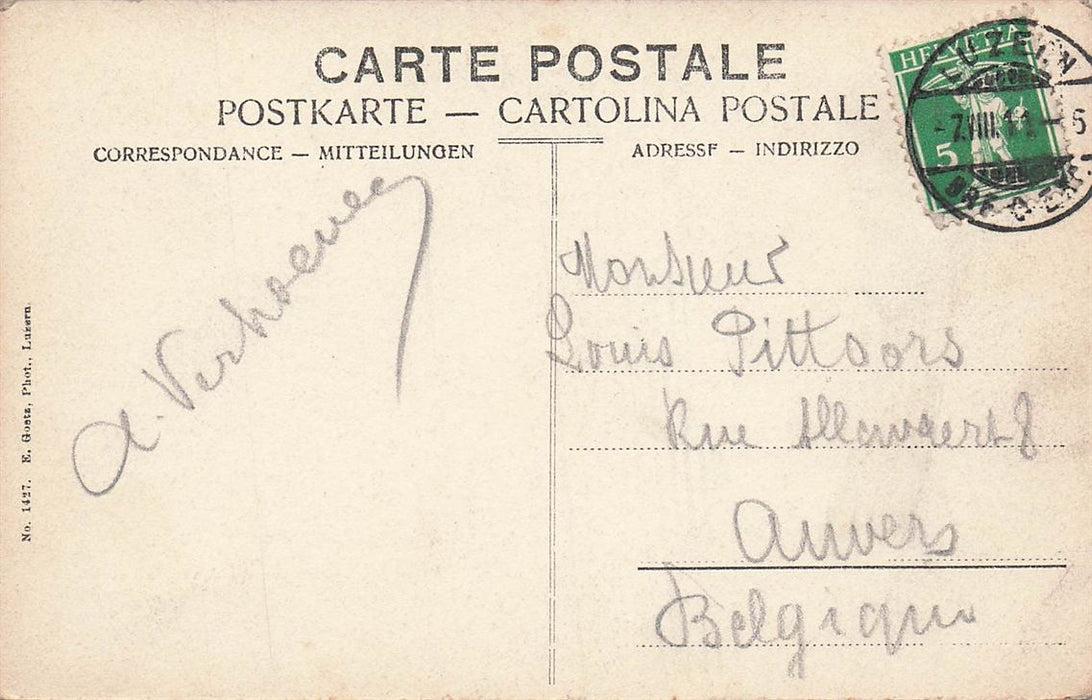 CARTE POSTALE
POSTKARTE — CARTOLINA POSTALE
CORRESPONDANCE — MITTEILUNGEN
ADRESSE — INDIRIZZO
HELVETIA
5
LUZERN
7.VIII.11. 6
A. Verhoeven
Monsieur
Louis Pittoors
Rue 8
Anvers
Belgique
No. 1427. E. Goetz, Phot., Luzern